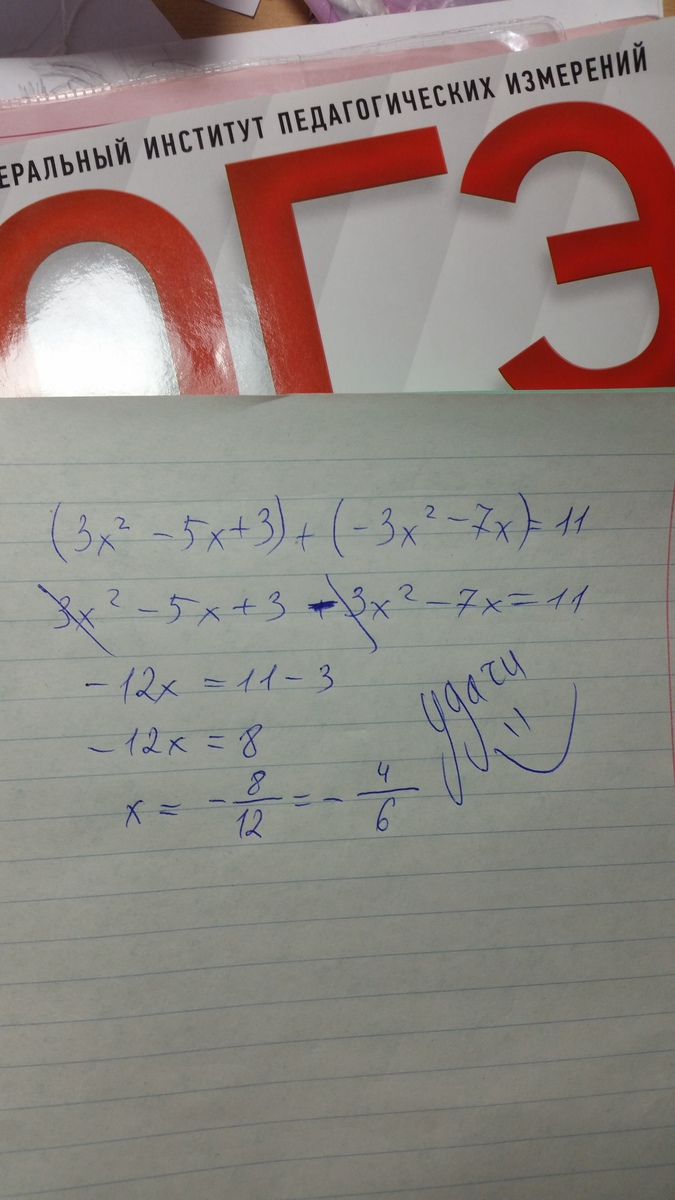 ЕРАЛЬНЫЙ ИНСТИТУТ ПЕДАГОГИЧЕСКИХ ИЗМЕРЕНИЙ
ОГЭ
(3x² - 5x + 3) + (-3x² - 7x) = 11
3x² - 5x + 3 - 3x² - 7x = 11
-12x = 11 - 3
-12x = 8
x = -8/12 = -4/6
удачи